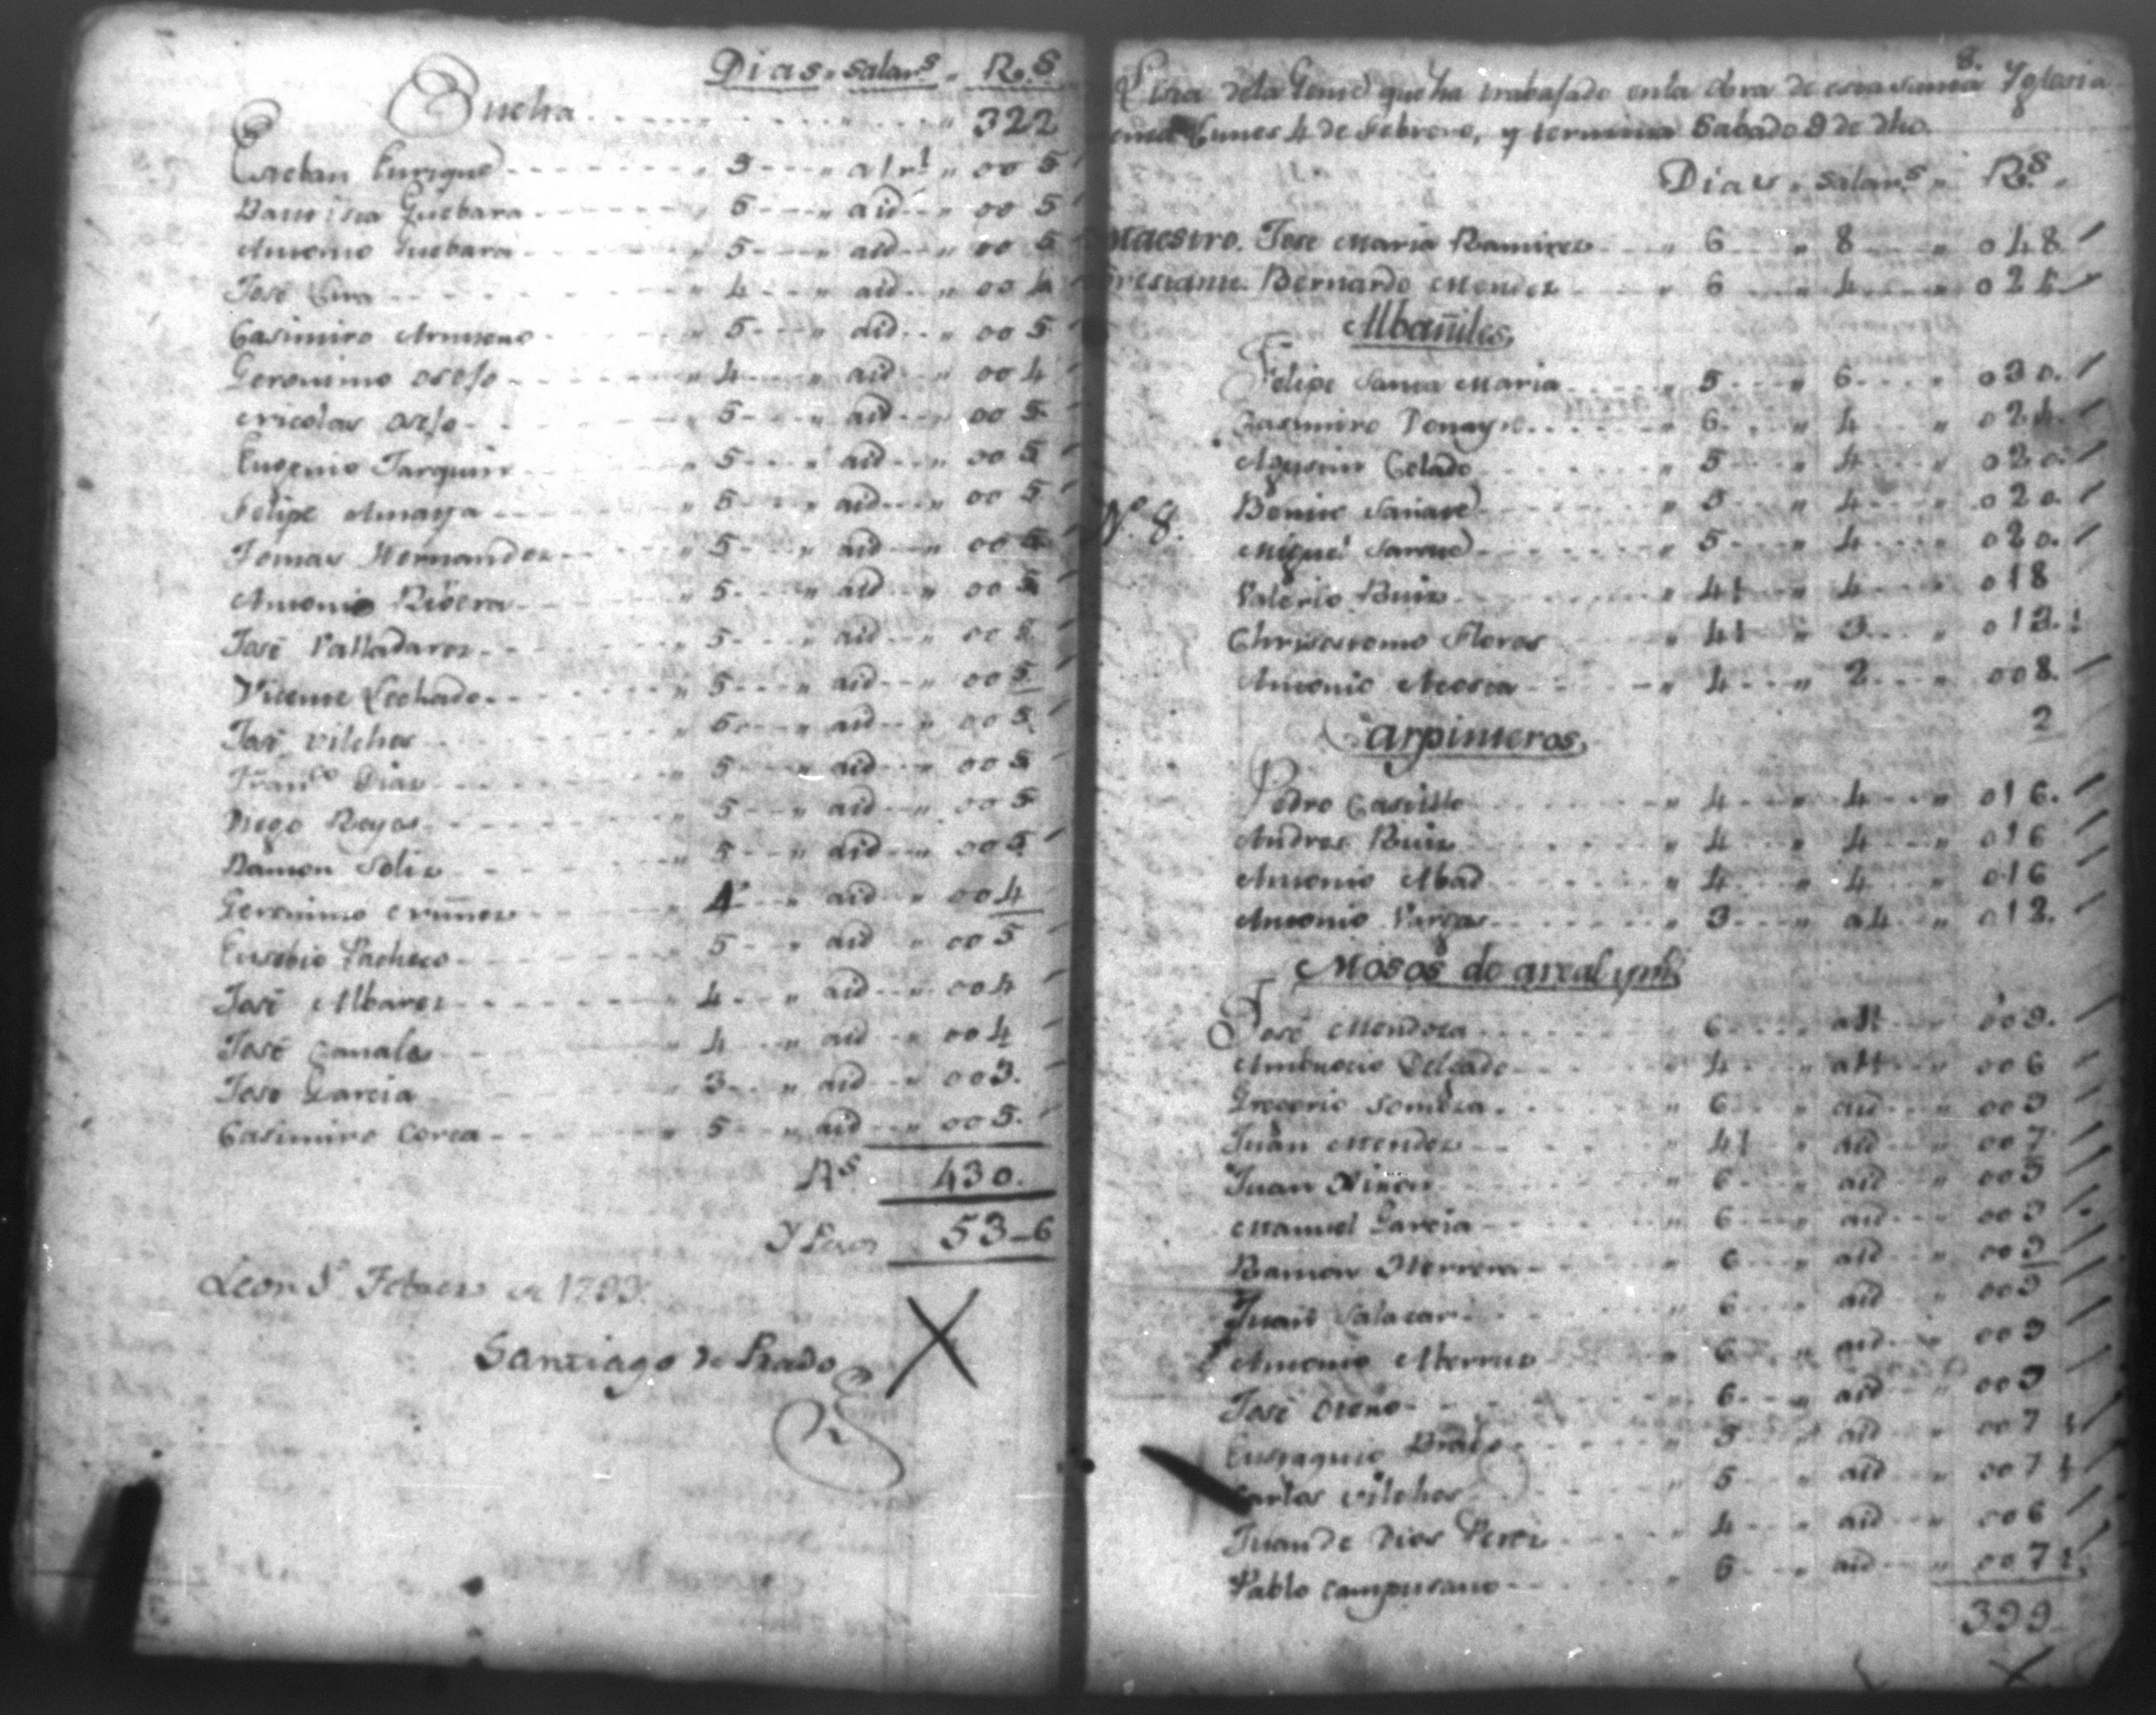 Dias. Salar.s R.s
Buelta 322
Esteban Enrique 5 a 1 r.l 00 5
Bautista Guebara 5 aid 00 5
Antonio Guebara 5 aid 00 5
José Lira 4 aid 00 4
Casimiro 5 aid 00 5
Geronimo Osejo 4 aid 00 4
Nicolas Osejo 5 aid 00 5
Eugenio Tarquin 5 aid 00 5
Felipe Amaya 5 aid 00 5
Tomas Hernandez 5 aid 00 5
Antonio Ribera 5 aid 00 5
José Valladarez 5 aid 00 5
Vicente Lechado 5 aid 00 5
José Vilchez aid 00 5
Fran.co Dias 5 aid 00 5
Diego Reyes 5 aid 00 5
Ramon Soliz 5 aid 00 5
Geronimo Nuñez 4 aid 00 4
Eusebio Pacheco 5 aid 00 5
José Albarez 4 aid 00 4
José Canales 4 aid 00 4
José Garcia 3 aid 003.
Casimiro Corea 5 aid 005.
R.s 430.
Y Pesos 53-6
Leon Febrero de 1793.
Santiago de Prado
8.
Lista dela Gente que ha trabajado enla obra de esta Santa Yglesia
Lunes 4 de Febrero, y termina Sabado 9 de dho.
Dias Salar.s R.s
Maestro. José Maria Ramirez 6 8 048
Bernardo Mendez 6 4 024
Albañiles
Felipe Santa Maria 5 6 030.
Casimiro 6 4 024.
Agustin Celado 5 4 020.
N.o 8.
5 4 020.
Miguel 5 4 020.
Valerio Ruiz 4½ 4 018
Chrisostomo Flores 4½ 3 013.½
Antonio Acosta 4 2 008.
2
Carpinteros
Pedro Castillo 4 4 016.
Andres Ruiz 4 4 016
Antonio Abad 4 4 016
Antonio Vargas 3 a4 012.
Mosos de a real y m.o
José Mendoza 6 a1½ 009.
Ambrocio Delgado 4 a1½ 006
Gregorio Somoza 6 aid 009
Juan Mendez 4½ aid 007
Juan 6 aid 009
Manuel Garcia 6 aid 009
Ramon Herrera 6 aid 009
Juan Salazar 6 aid 009
Antonio 6 aid 009
José 6 aid 009
Eustaquio 5 aid 007½
Carlos Vilchez 5 aid 007½
Juan de Dios Perez 4 aid 006
Pablo Campusano aid 007½
399